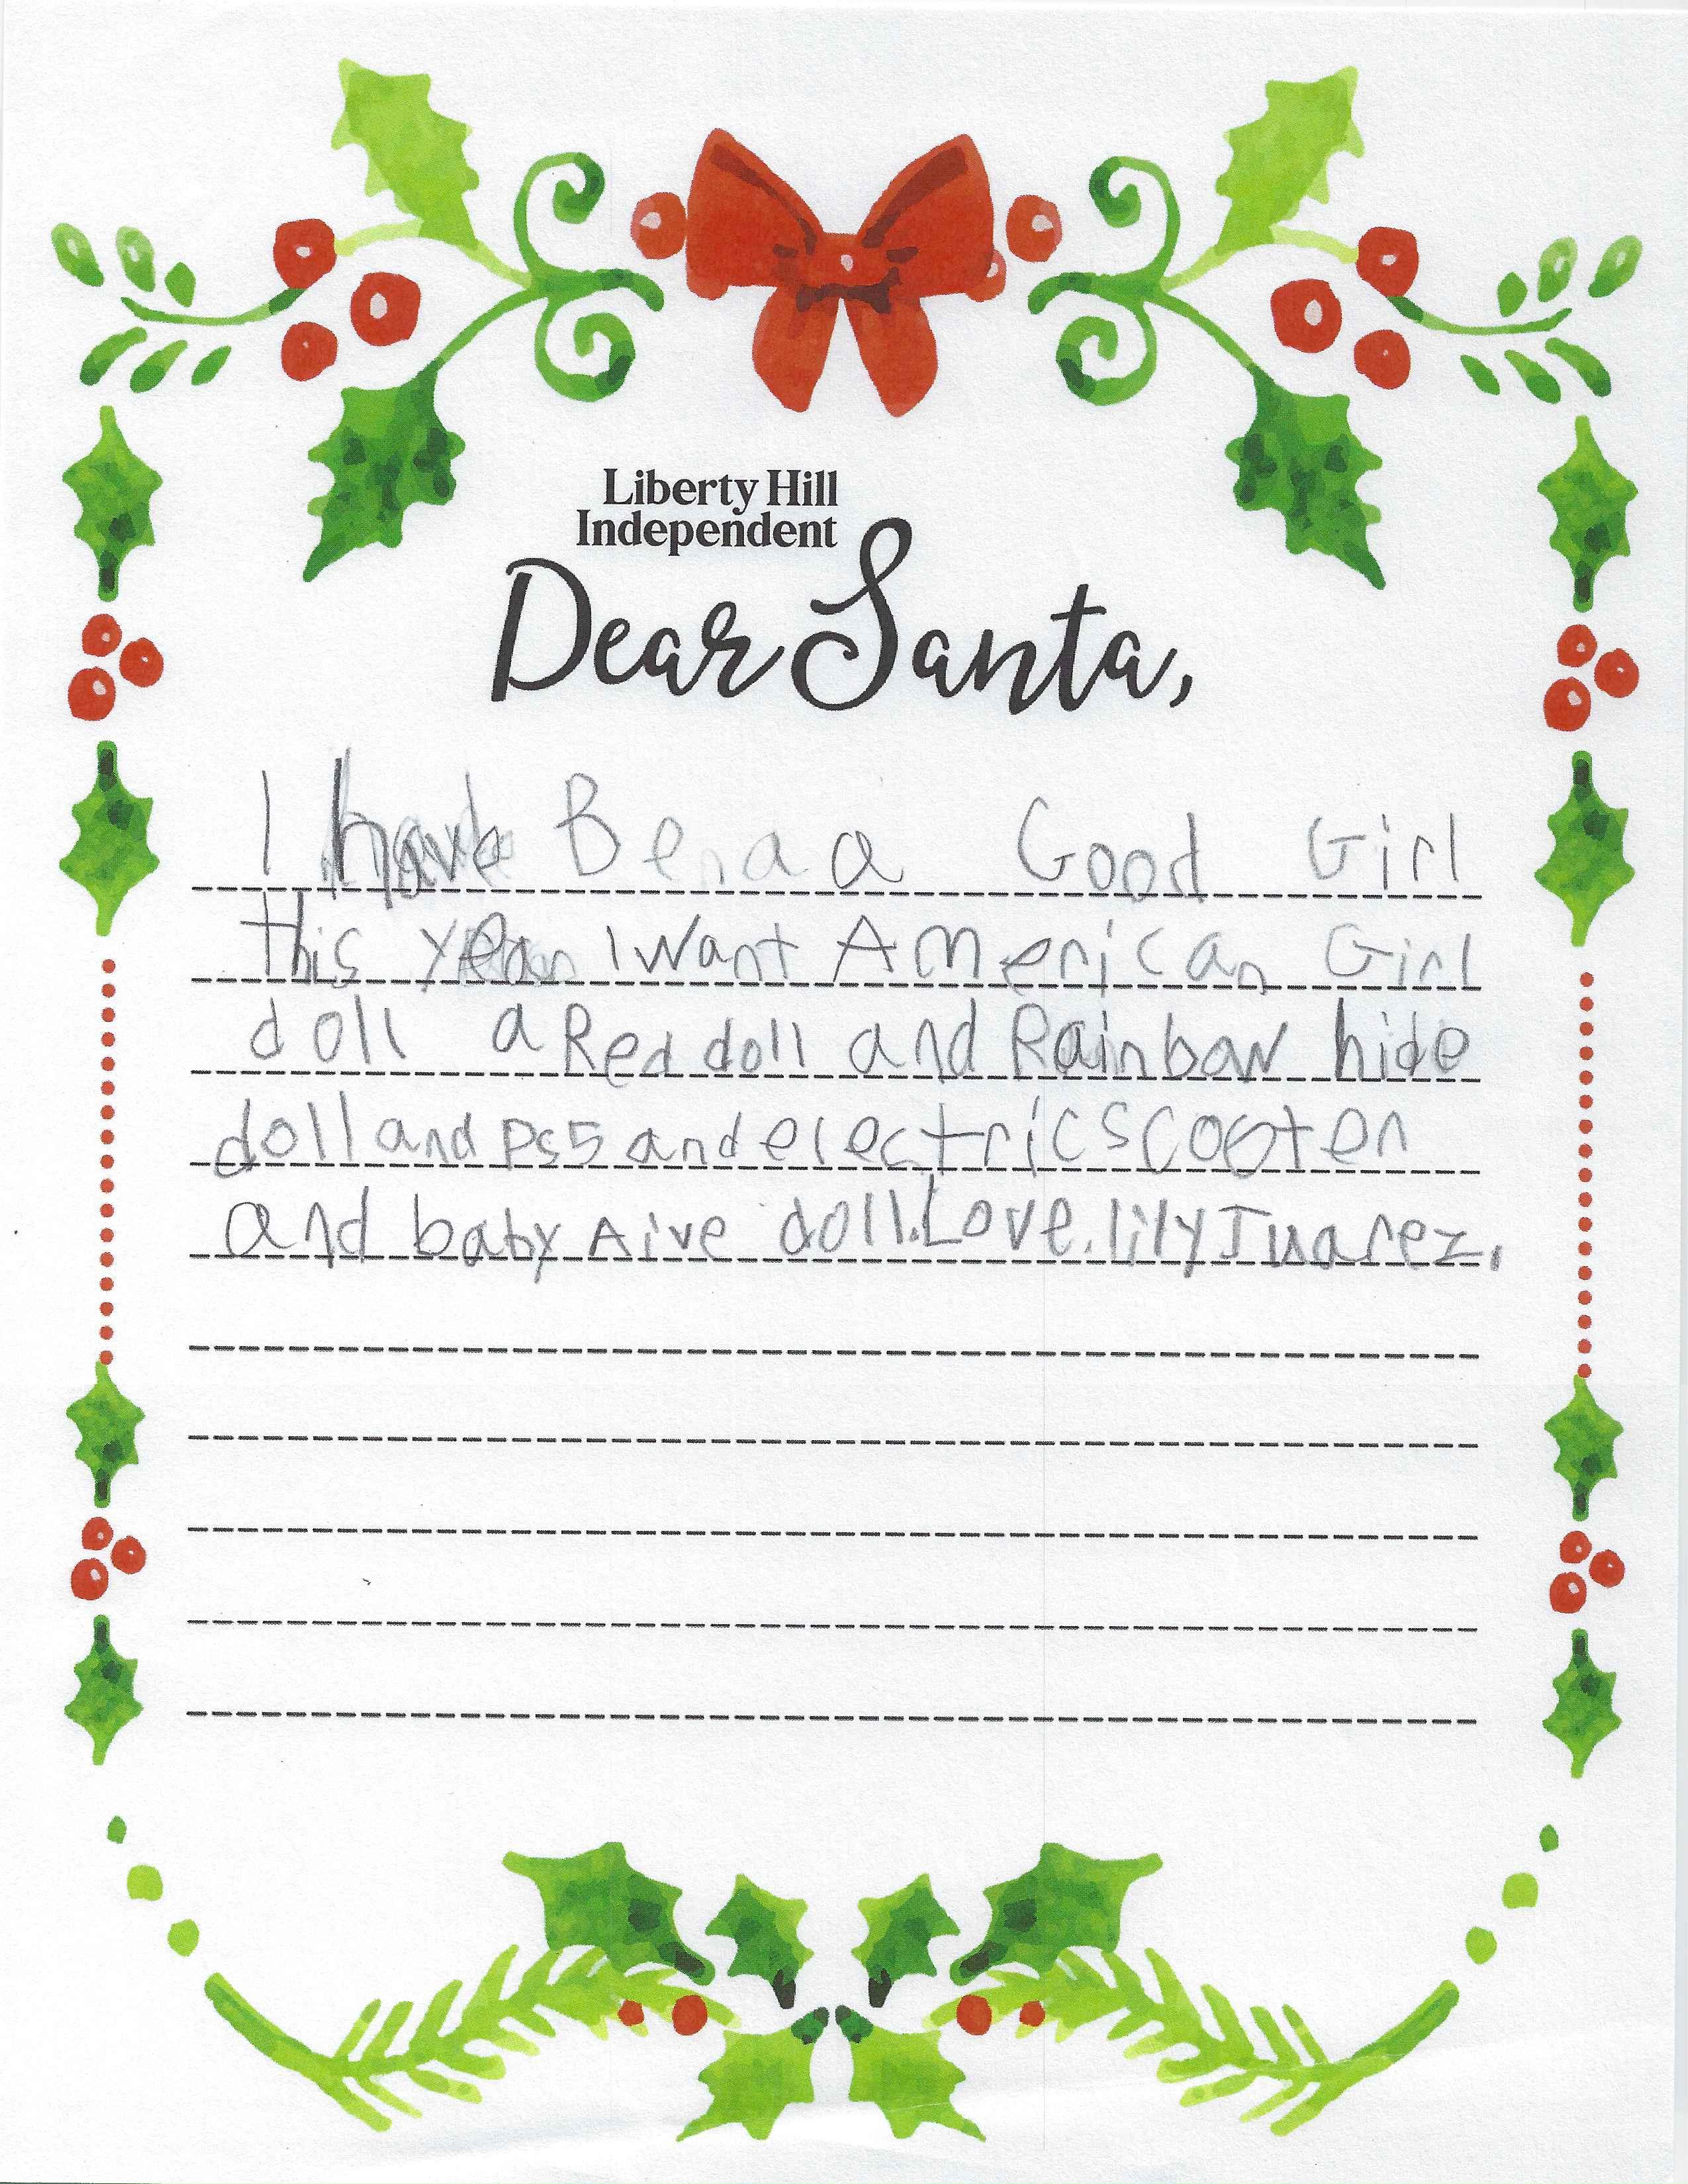 Liberty Hill
Independent
Dear Santa,
I have Bena a Good Girl
this year I Want American Girl
doll a Red doll and Rainbow hide
doll and Ps5 and electric scooter
and baby Aive doll. Love. lily Juarez.